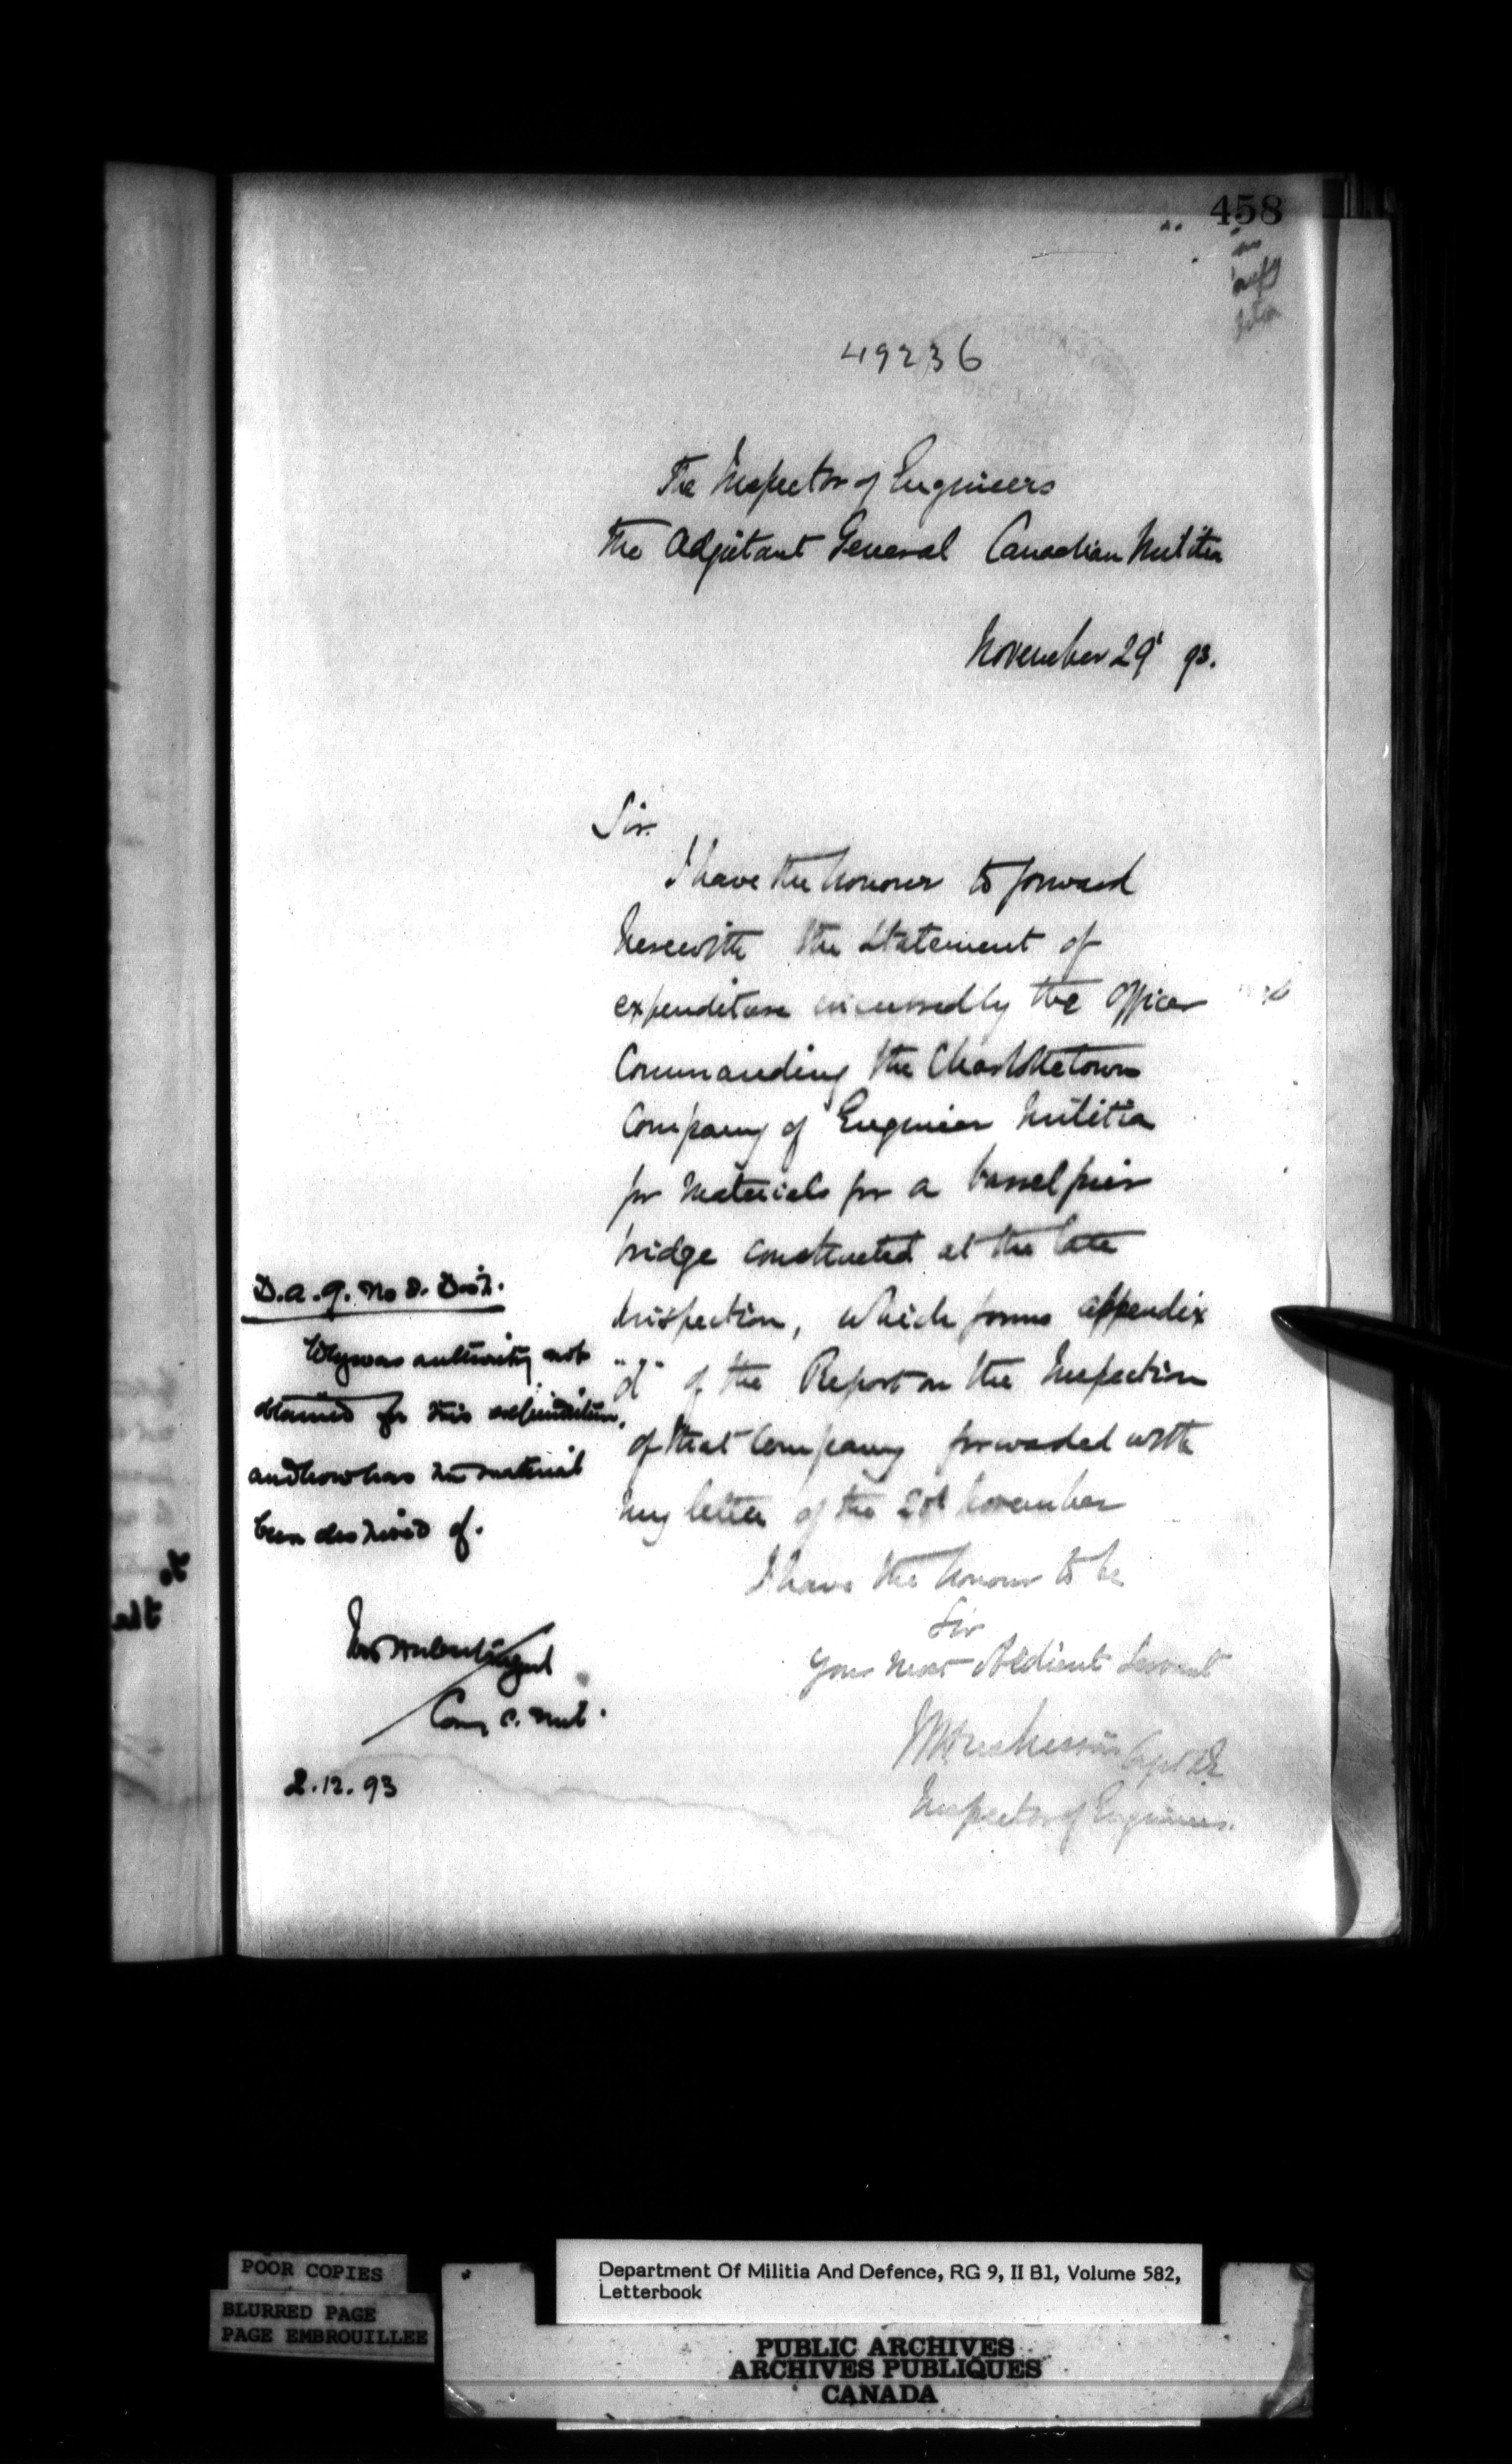 458
49236
The Inspector of Engineers
The Adjutant General Canadian Militia
November 29' 93.
Sir.
I have the honour to forward
herewith the Statement of
expenditure incurred by the Officer
Commanding the Charlottetown
Company of Engineer Militia
for Materials for a barrel pier
bridge constructed at the late
Inspection, which forms appendix
"d" of the Report on the Inspection
of that Company forwarded with
my letter of the November
I have the honour to be
Sir
Your most Obedient Servant
Capt RE
Inspector of Engineers.
D.A.G. No 8. Dist.
Why was authority not
obtained for this expenditure,
and how has the material
been disposed of.
Com C. Mil.
2.12.93
POOR COPIES
BLURRED PAGE
PAGE EMBROUILLEE
Department Of Militia And Defence, RG 9, II B1, Volume 582,
Letterbook
PUBLIC ARCHIVES
ARCHIVES PUBLIQUES
CANADA